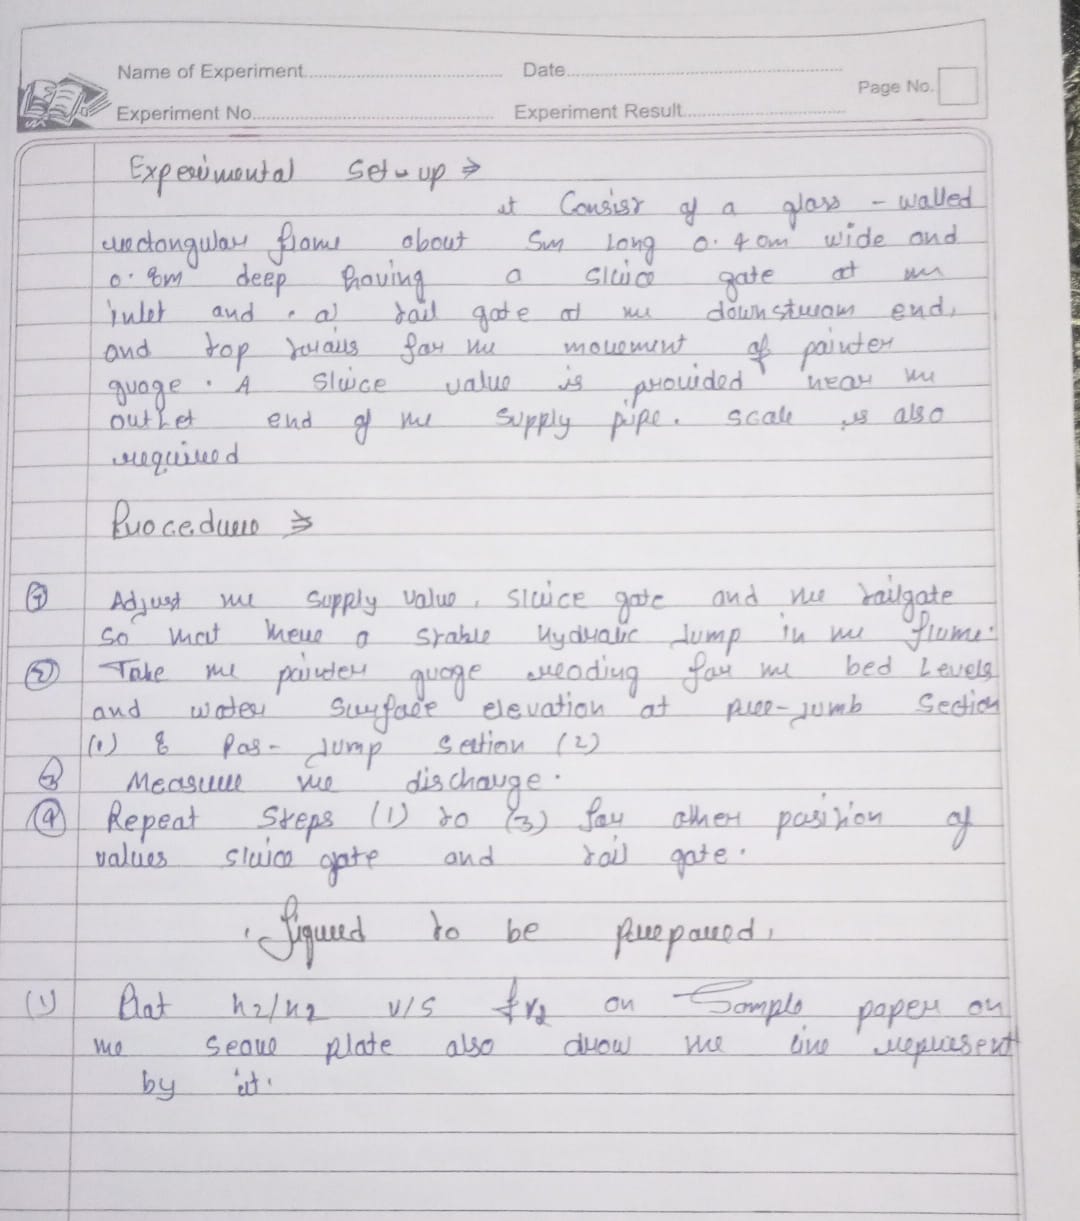 Name of Experiment
Date
Page No.
Experiment No.
Experiment Result
Experimental Set-up ⇒
it Consist of a glass - walled
rectangular flome about 5m long 0.40m wide and
0.8m deep having a sluice gate at the
inlet and a tail gate at the downstream end,
and top for the movement of pointer
guage. A Sluice value is provided near the
outlet end of the supply pipe. scale is also
required
Procedure ⇒
① Adjust the supply value, sluice gate and the tailgate
So that there a stable Hydralic Jump in the flume.
② Take the pointer guage reading for the bed Levels
and water surface elevation at pree-jumb Section
(1) & Pos- Jump section (2)
③ Measure the discharge.
④ Repeat Steps (1) to (3) for other position of
values sluice gate and tail gate.
figured to be prepared,
(1) Plot h2/h2 v/s fr2 on Sample paper on
the seave plate also draw the line represent
by it.